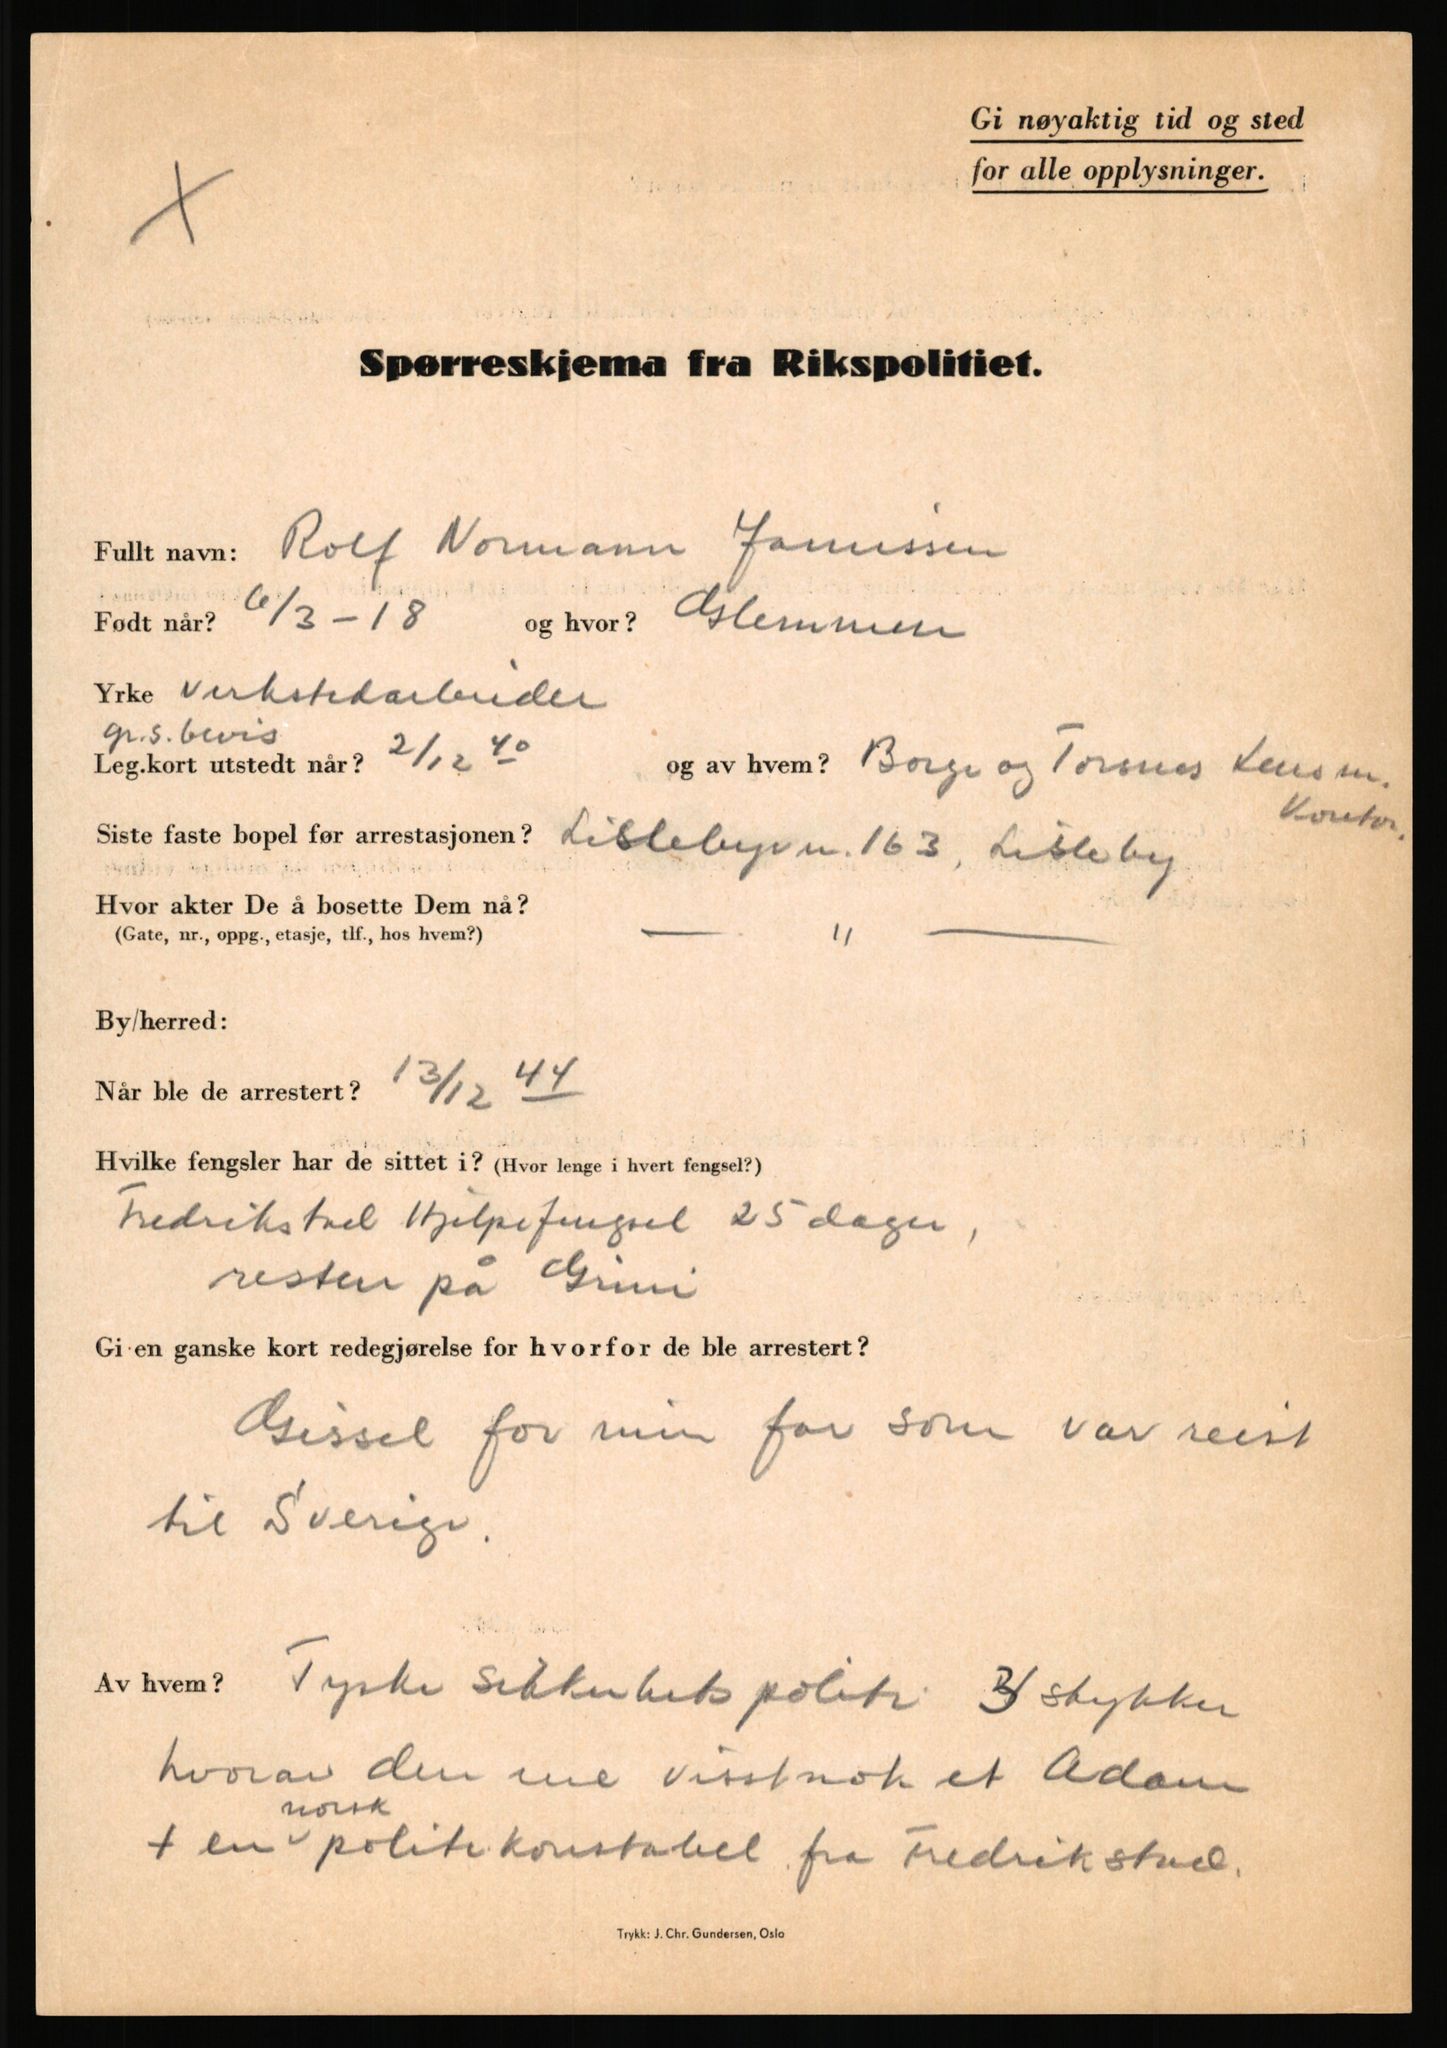 Gi nøyaktig tid og sted
for alle opplysninger.
X
Spørreskjema fra Rikspolitiet.
Fullt navn: Rolf Normann
Født når? 6/3-18 og hvor? Glemmen
Yrke verkstedarbeider
gr.s.bevis
Leg.kort utstedt når? 2/12 40 og av hvem? Borge og Torsnes Lensm.
Kontor.
Siste faste bopel før arrestasjonen? Lislebyvn. 163, Lisleby
Hvor akter De å bosette Dem nå?
(Gate, nr., oppg., etasje, tlf., hos hvem?) — " —
By/herred:
Når ble de arrestert? 13/12 44
Hvilke fengsler har de sittet i? (Hvor lenge i hvert fengsel?)
Fredrikstad Hjelpefengsel 25 dager,
resten på Grini
Gi en ganske kort redegjørelse for hvorfor de ble arrestert?
Gissel for min far som var reist
til Sverige.
Av hvem? Tyske sikkerhetspoliti stykker
hvorav den ene visstnok et Adam
norsk
+ en politikonstabel fra Fredrikstad.
Trykk: J. Chr. Gundersen, Oslo